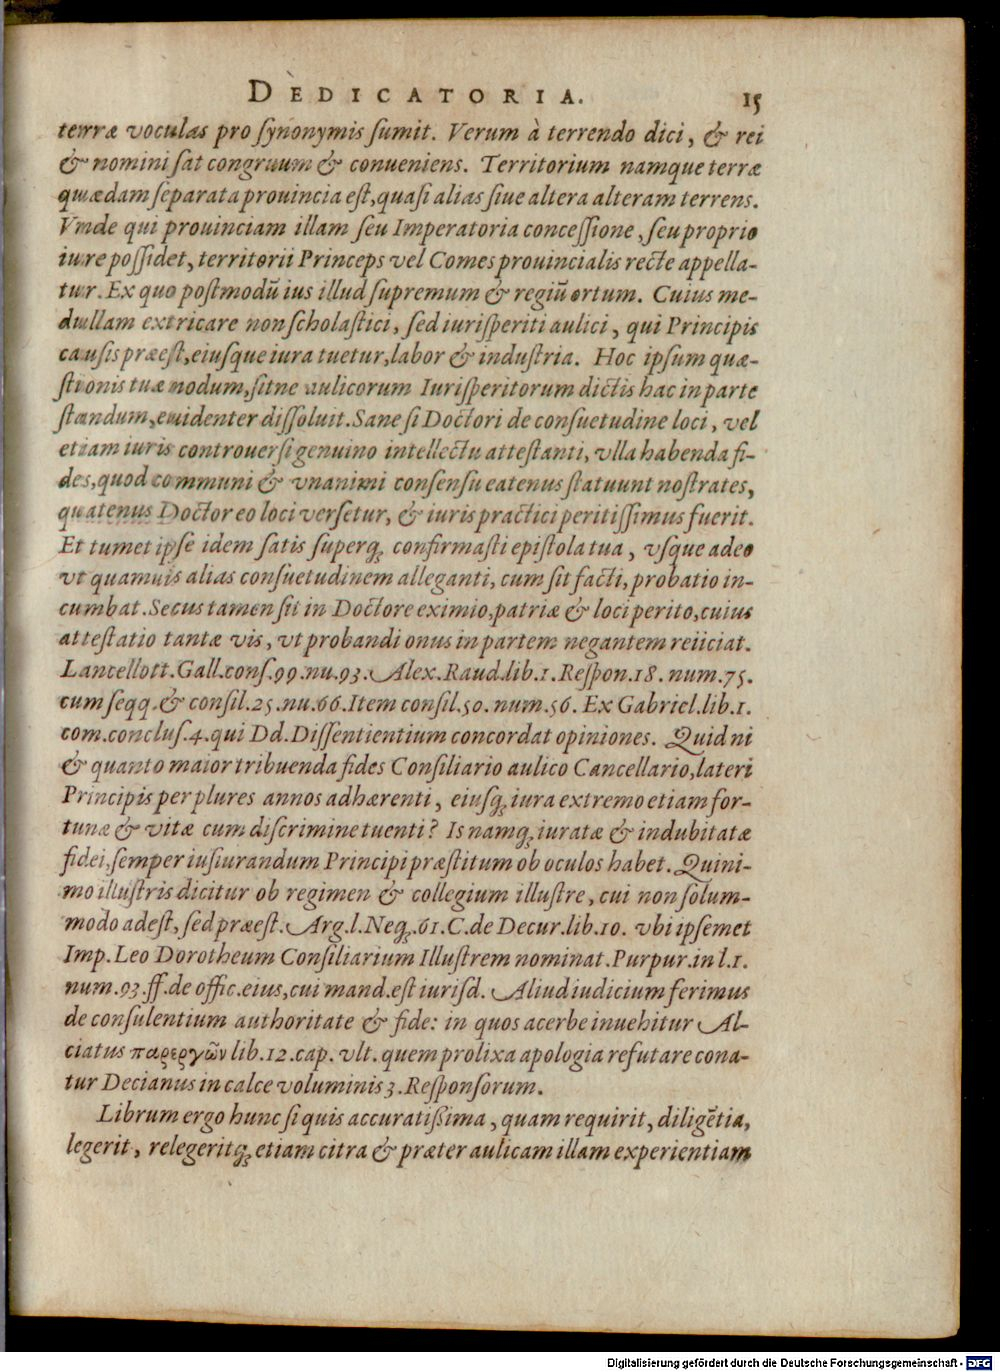 DEDICATORIA. 15
terræ voculas pro synonymis sumit. Verum à terrendo dici, & rei
& nomini sat congruum & conueniens. Territorium namque terræ
quædam separata prouincia est, quasi alias siue altera alteram terrens.
Vnde qui prouinciam illam seu Imperatoria concessione, seu proprio
iure possidet, territorii Princeps vel Comes prouincialis recte appella-
tur. Ex quo postmodū ius illud supremum & regiū ortum. Cuius me-
dullam extricare non scholastici, sed iurisperiti aulici, qui Principis
causis præest, eiusque iura tuetur, labor & industria. Hoc ipsum quæ-
stionis tuæ nodum, sitne aulicorum Iurisperitorum dictis hac in parte
standum, euidenter dissoluit. Sane si Doctori de consuetudine loci, vel
etiam iuris controuersi genuino intellectu attestanti, vlla habenda fi-
des, quod communi & vnanimi consensu eatenus statuunt nostrates,
quatenus Doctor eo loci versetur, & iuris practici peritissimus fuerit.
Et tumet ipse idem satis superq; confirmasti epistola tua, vsque adeo
vt quamuis alias consuetudinem alleganti, cum sit facti, probatio in-
cumbat. Secus tamen sit in Doctore eximio, patriæ & loci perito, cuius
attestatio tantæ vis, vt probandi onus in partem negantem reiiciat.
Lancellott. Gall. cons. 99. nu. 93. Alex. Raud. lib. 1. Respon. 18. num. 75.
cum seqq. & consil. 25. nu. 66. Item consil. 50. num. 56. Ex Gabriel. lib. 1.
com. conclus. 4. qui Dd. Dissentientium concordat opiniones. Quid ni
& quanto maior tribuenda fides Consiliario aulico Cancellario, lateri
Principis per plures annos adhærenti, eiusq; iura extremo etiam for-
tunæ & vitæ cum discrimine tuenti? Is namq; iuratæ & indubitatæ
fidei, semper iusiurandum Principi præstitum ob oculos habet. Quini-
mo illustris dicitur ob regimen & collegium illustre, cui non solum-
modo adest, sed præest. Arg. l. Neq; 61. C. de Decur. lib. 10. vbi ipsemet
Imp. Leo Dorotheum Consiliarium Illustrem nominat. Purpur. in l. 1.
num. 93. ff. de offic. eius, cui mand. est iurisd. Aliud iudicium ferimus
de consulentium authoritate & fide: in quos acerbe inuehitur Al-
ciatus παρεργῶν lib. 12. cap. vlt. quem prolixa apologia refutare cona-
tur Decianus in calce voluminis 3. Responsorum.
Librum ergo hunc si quis accuratißima, quam requirit, diligētia,
legerit, relegeritq; etiam citra & præter aulicam illam experientiam
Digitalisierung gefördert durch die Deutsche Forschungsgemeinschaft - DFG